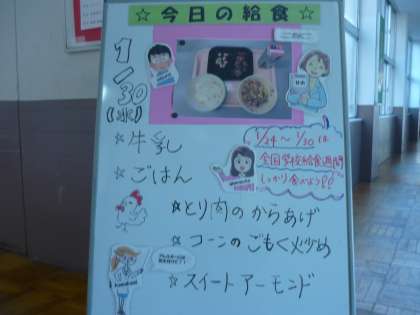 ☆今日の給食☆
1/30(水)
☆牛乳
☆ごはん
1/24～1/30は
全国学校給食週間
しっかり食べよう!!
☆とり肉のからあげ
☆コーンのごもく炒め
☆スイートアーモンド